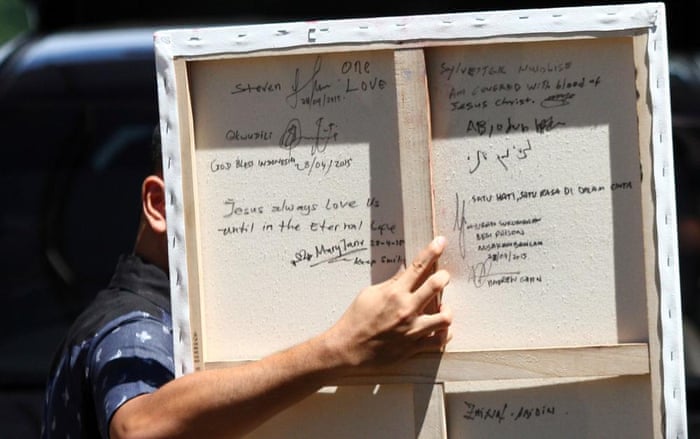 Steven
ONE
LOVE
28/04/2015.
Okwudili
GOD BLESS INDONESIA 28/04/2015
Jesus always Love Us
until in the Eternal Life
Mary Jane 28-4-2015
Keep Smili
SYLVESTER NWOLISE
AM COVERED WITH blood of
Jesus Christ.
SATU HATI, SATU RASA DI DALAM CINTA
BESI PRISON
NUSAKAMBANGAN
28/04/2015
ANDREW CHAN
ZAINAL-ABIDIN